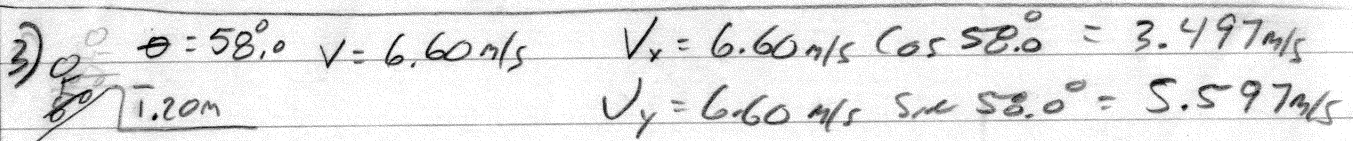 3) θ = 58.0° V = 6.60 m/s Vx = 6.60 m/s Cos 58.0° = 3.497 m/s
1.20m Vy = 6.60 m/s Sin 58.0° = 5.597 m/s